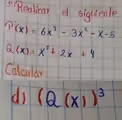 Realizar el siguiente
P(x) = 6x³ - 3x² - x - 5
Q(x) = x² + 2x + 4
Calcular
d) (Q(x))³